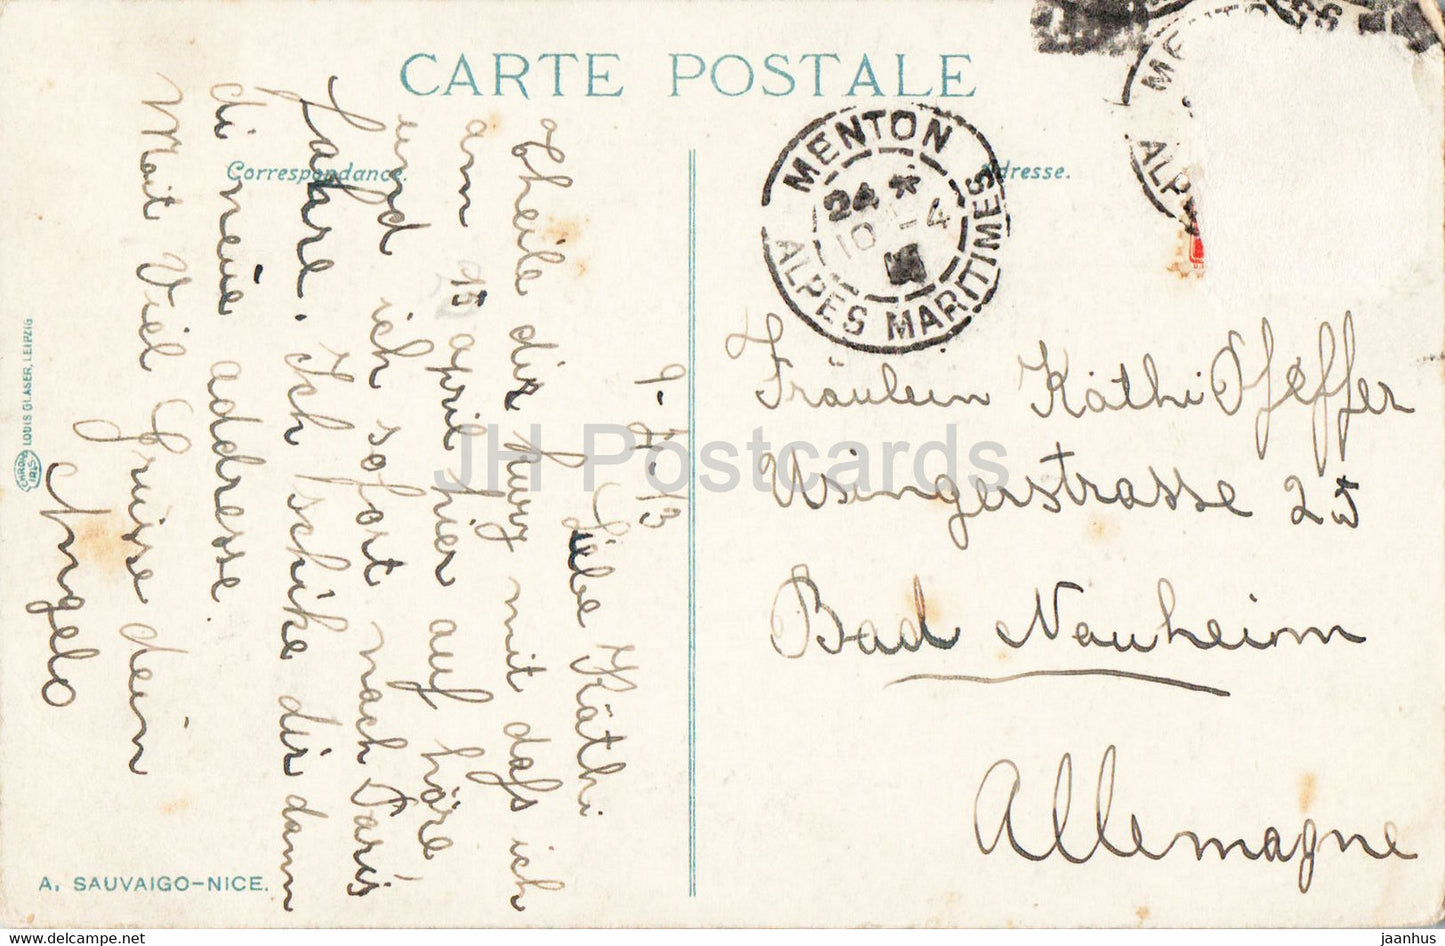 CARTE POSTALE
Correspondance.
Adresse.
MENTON
24 *
10 -4
ALPES MARITIMES
MENTO
ALP
9-4-13
Liebe Käthi
theile dir kurz mit dass ich
am 15 april hier auf höre
und ich sofort nach Paris
fahre. Ich schike dir dann
di neüe addresse.
Mit Viel Grüsse dein
Angelo
Fräulein Käthi Pfeffer
Usingerstrasse 25
Bad Nauheim
Allemagne
A. SAUVAIGO-NICE.
CHROMO IRIS. LOUIS GLASER, LEIPZIG
JH Postcards
www.delcampe.net
jaanhus